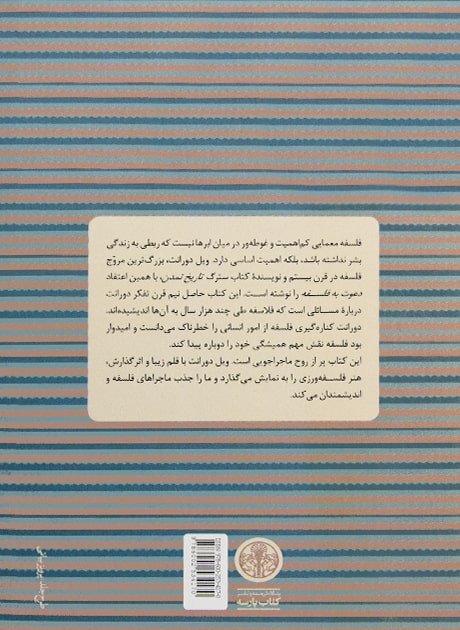 فلسفه معمایی کم‌اهمیت و غوطه‌ور در میان ابرها نیست که ربطی به زندگی
بشر نداشته باشد، بلکه اهمیت اساسی دارد. ویل دورانت، بزرگ‌ترین مروّج
فلسفه در قرن بیستم و نویسندهٔ کتاب سترگ تاریخ تمدن، با همین اعتقاد
دعوت به فلسفه را نوشته است. این کتاب حاصل نیم قرن تفکر دورانت
دربارهٔ مسائلی است که فلاسفه طی چند هزار سال به آن‌ها اندیشیده‌اند.
دورانت کناره‌گیری فلسفه از امور انسانی را خطرناک می‌دانست و امیدوار
بود فلسفه نقش مهم همیشگی خود را دوباره پیدا کند.
این کتاب پر از روح ماجراجویی است. ویل دورانت با قلم زیبا و اثرگذارش،
هنر فلسفه‌ورزی را به نمایش می‌گذارد و ما را جذب ماجراهای فلسفه و
اندیشمندان می‌کند.
کتاب پارسه